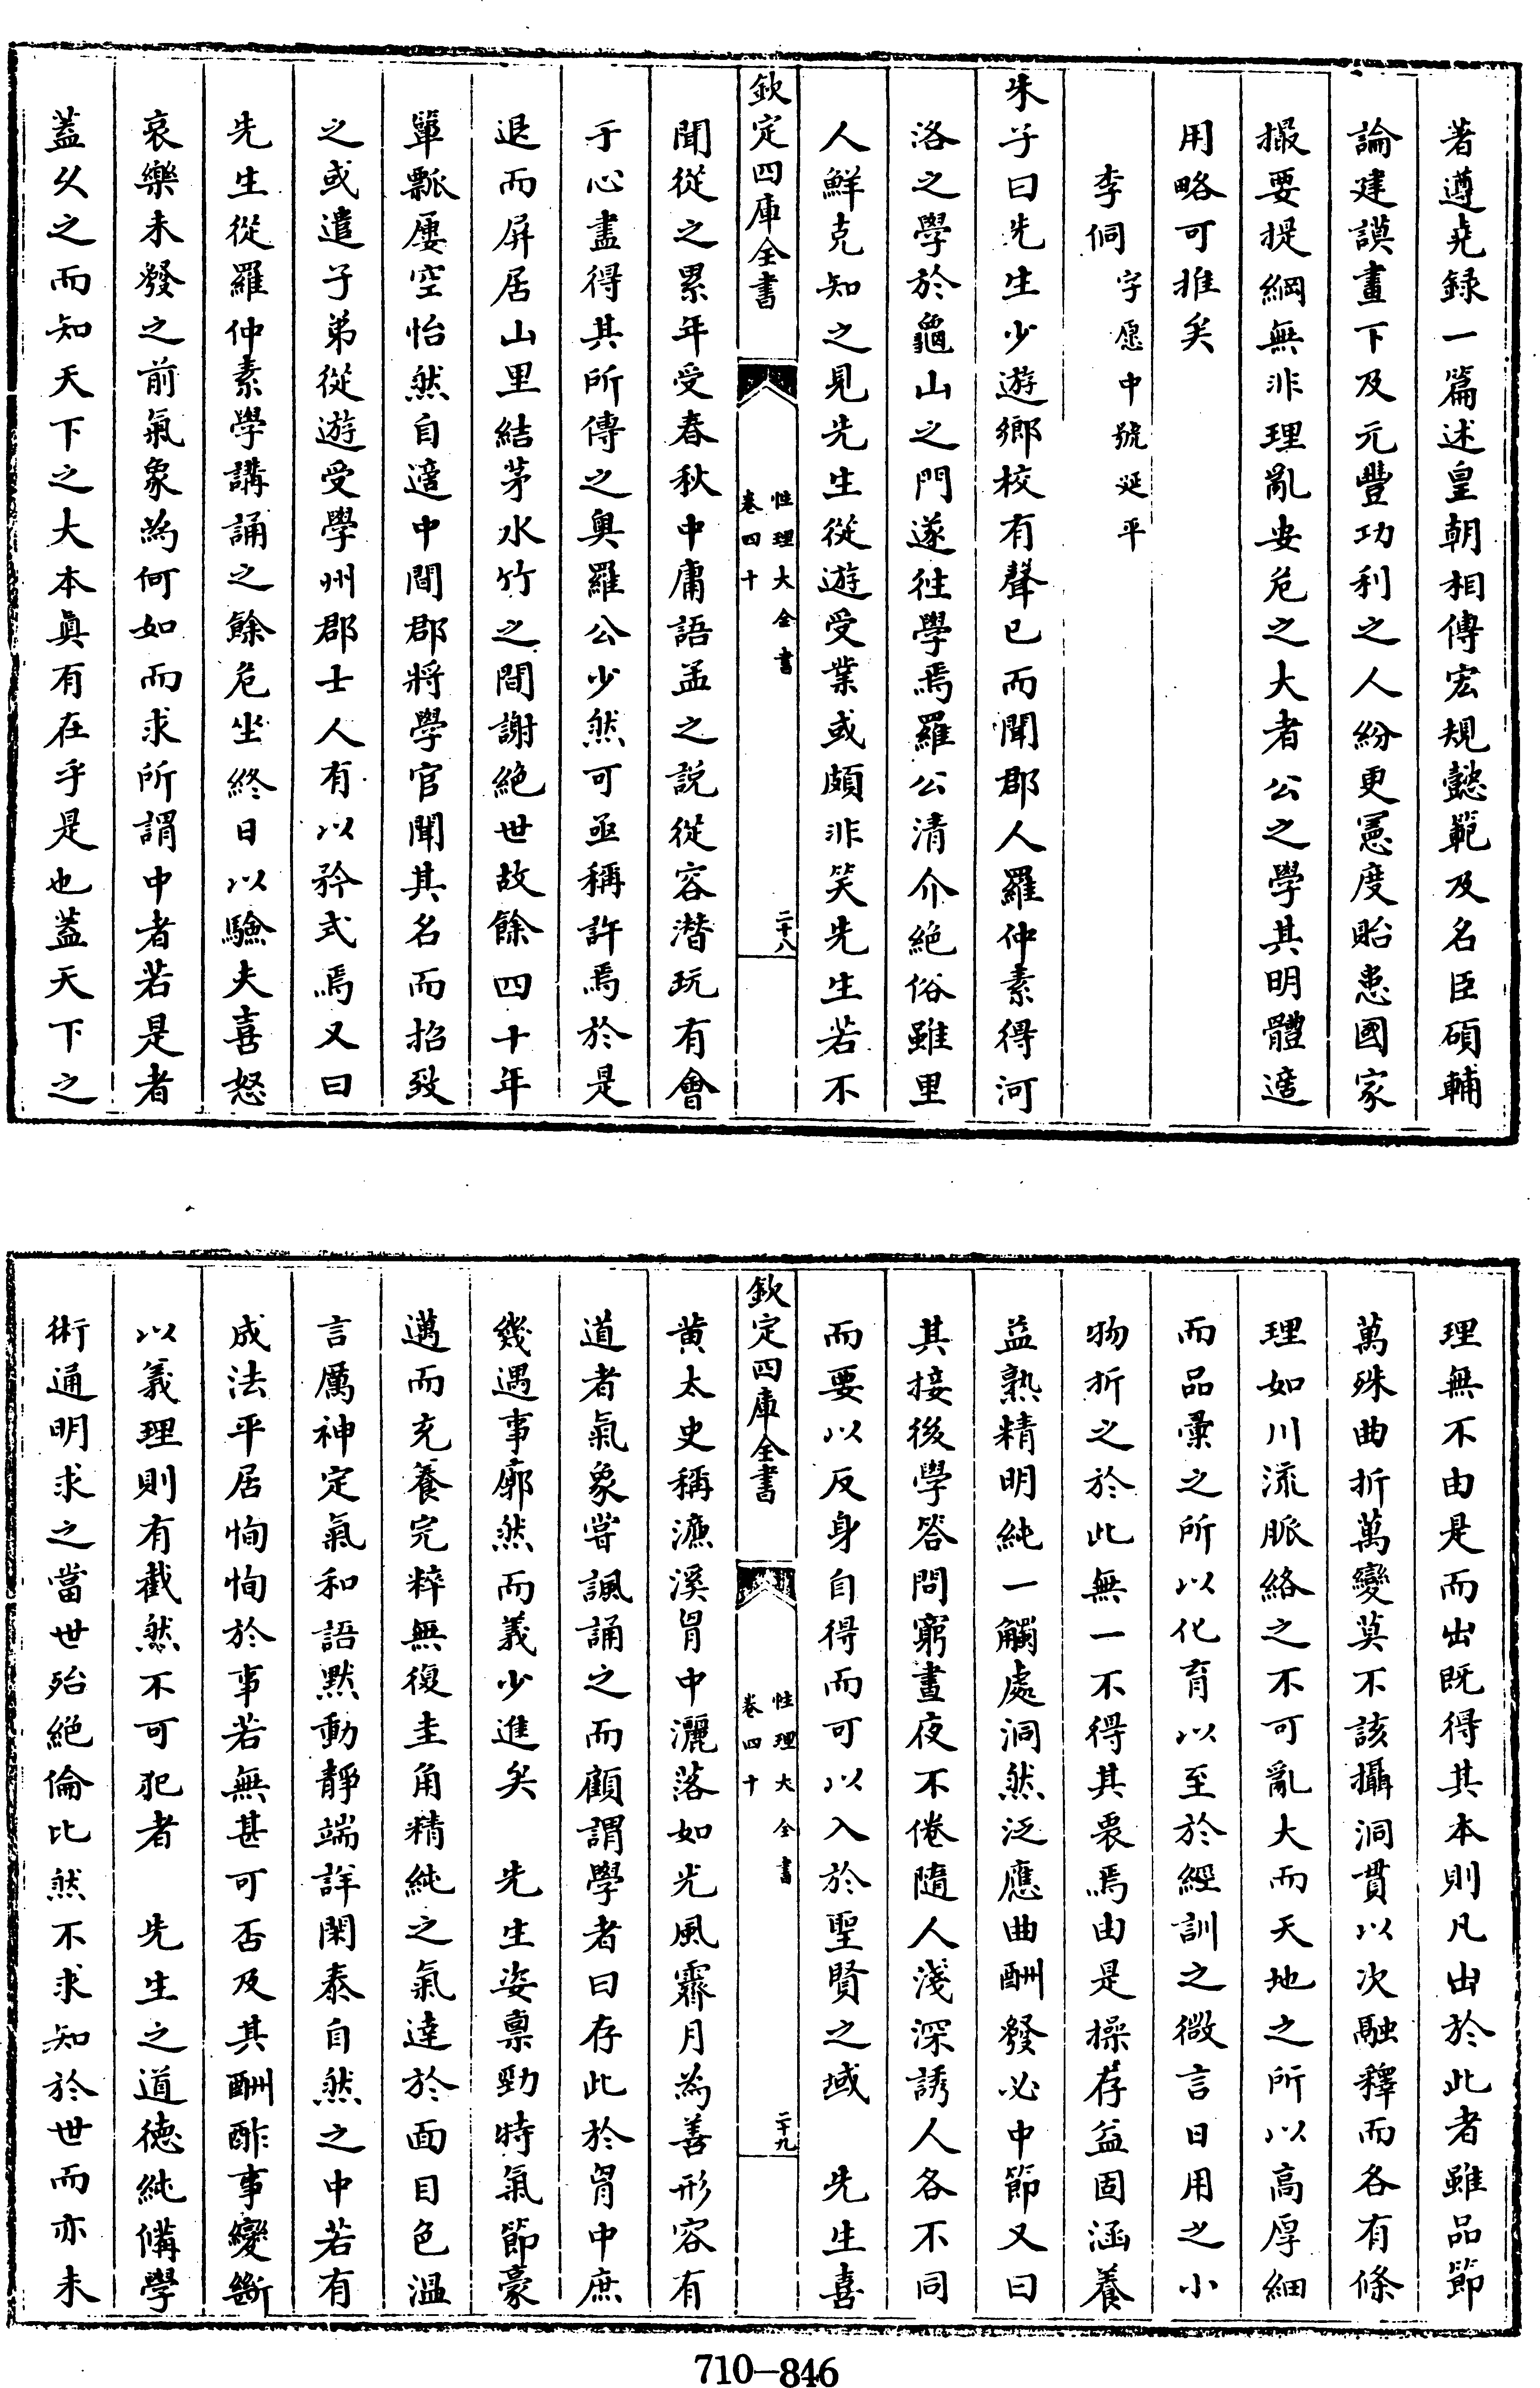 著遵堯録一篇述皇朝相傳宏規懿範及名臣碩輔
論建謨畫下及元豐功利之人紛更憲度貽患國家
撮要提綱無非理亂安危之大者公之學其明體適
用略可推矣
李侗字愿中號延平
朱子曰先生少遊鄉校有聲已而聞郡人羅仲素得河
洛之學於龜山之門遂往學焉羅公清介絶俗雖里
人鮮克知之見先生從遊受業或頗非笑先生若不
欽定四庫全書
性理大全書
卷四十
二十八
聞從之累年受春秋中庸語孟之說從容潜玩有會
于心盡得其所傳之奥羅公少然可亟稱許焉於是
退而屏居山里結茅水竹之間謝絶世故餘四十年
簞瓢屢空怡然自適中間郡將學官聞其名而招致
之或遣子弟從遊受學州郡士人有以矜式焉又曰
先生從羅仲素學講誦之餘危坐終日以驗夫喜怒
哀樂未發之前氣象為何如而求所謂中者若是者
蓋久之而知天下之大本真有在乎是也蓋天下之
理無不由是而出既得其本則凡出於此者雖品節
萬殊曲折萬變莫不該攝洞貫以次融釋而各有條
理如川流脈絡之不可亂大而天地之所以高厚細
而品彚之所以化育以至於經訓之微言日用之小
物折之於此無一不得其衷焉由是操存益固涵養
益熟精明純一觸處洞然泛應曲酬發必中節又曰
其接後學答問窮晝夜不倦隨人淺深誘人各不同
而要以反身自得而可以入於聖賢之域　先生喜
欽定四庫全書
性理大全書
卷四十
二十九
黄太史稱濂溪胷中灑落如光風霽月為善形容有
道者氣象嘗諷誦之而顧謂學者曰存此於胷中庶
幾遇事廓然而義少進矣　先生姿禀勁特氣節豪
邁而充養完粹無復圭角精純之氣達於面目色溫
言厲神定氣和語黙動靜端詳閑泰自然之中若有
成法平居恂恂於事若無甚可否及其酬酢事變斷
以義理則有截然不可犯者　先生之道徳純備學
術通明求之當世殆絶倫比然不求知於世而亦未
710-846